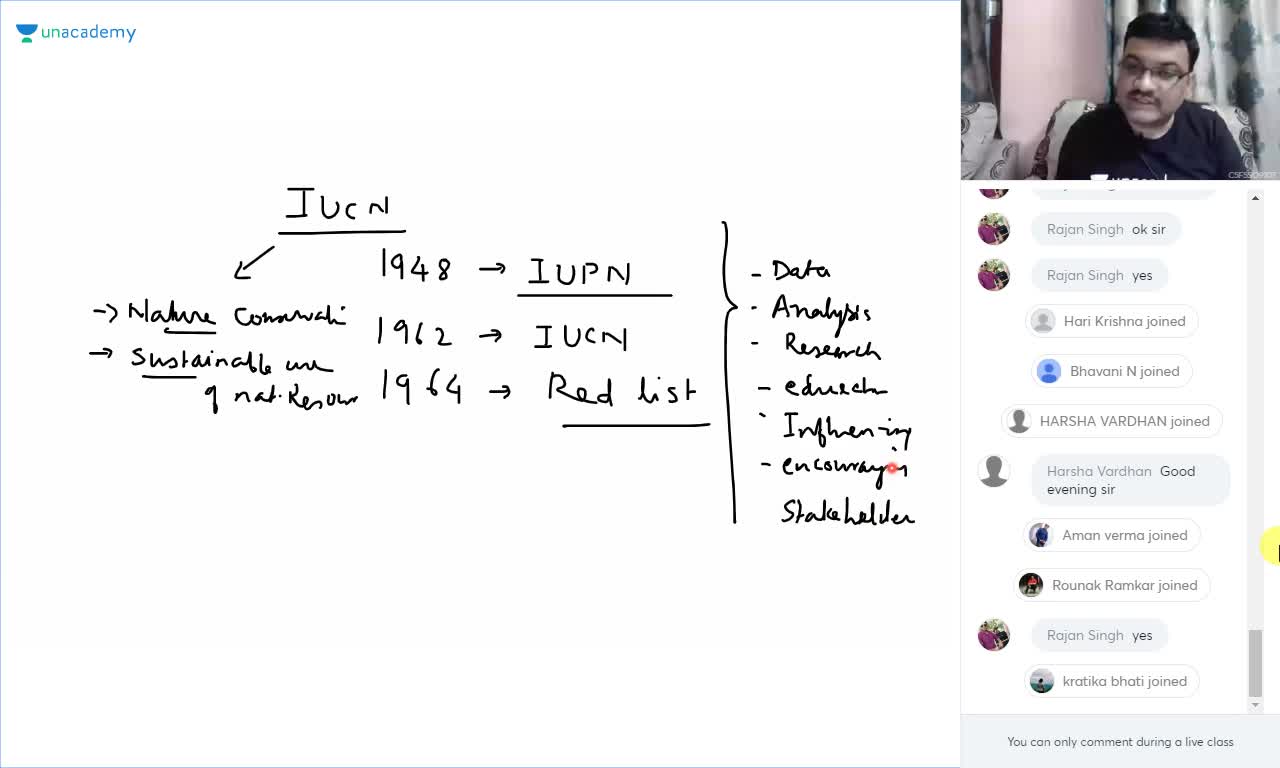 unacademy
IUCN
1948 → IUPN
→ Nature Conservati
1962 → IUCN
→ Sustainable use
of nat. Resour
1964 → Red list
- Data
- Analysis
- Research
- educat
- Influen-ing
- encouragin
Stakeholder
Rajan Singh ok sir
Rajan Singh yes
Hari Krishna joined
Bhavani N joined
HARSHA VARDHAN joined
Harsha Vardhan Good
evening sir
Aman verma joined
Rounak Ramkar joined
Rajan Singh yes
kratika bhati joined
You can only comment during a live class